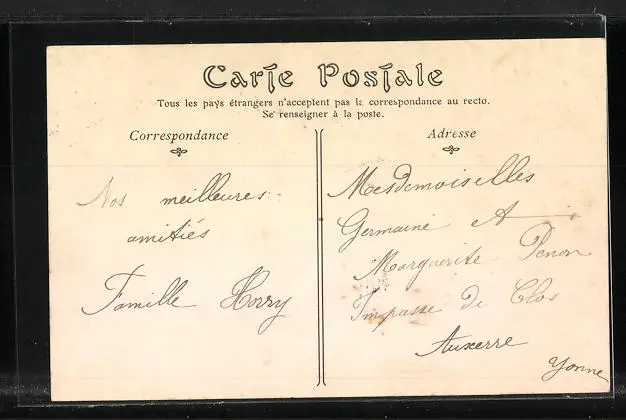 Carte Postale
Tous les pays étrangers n'acceptent pas la correspondance au recto.
Se renseigner à la poste.
Correspondance
Nos meilleures
amitiés
Famille Horry
Adresse
Mesdemoiselles
Germaine et
Marguerite Penon
Impasse du Clos
Auxerre
Yonne